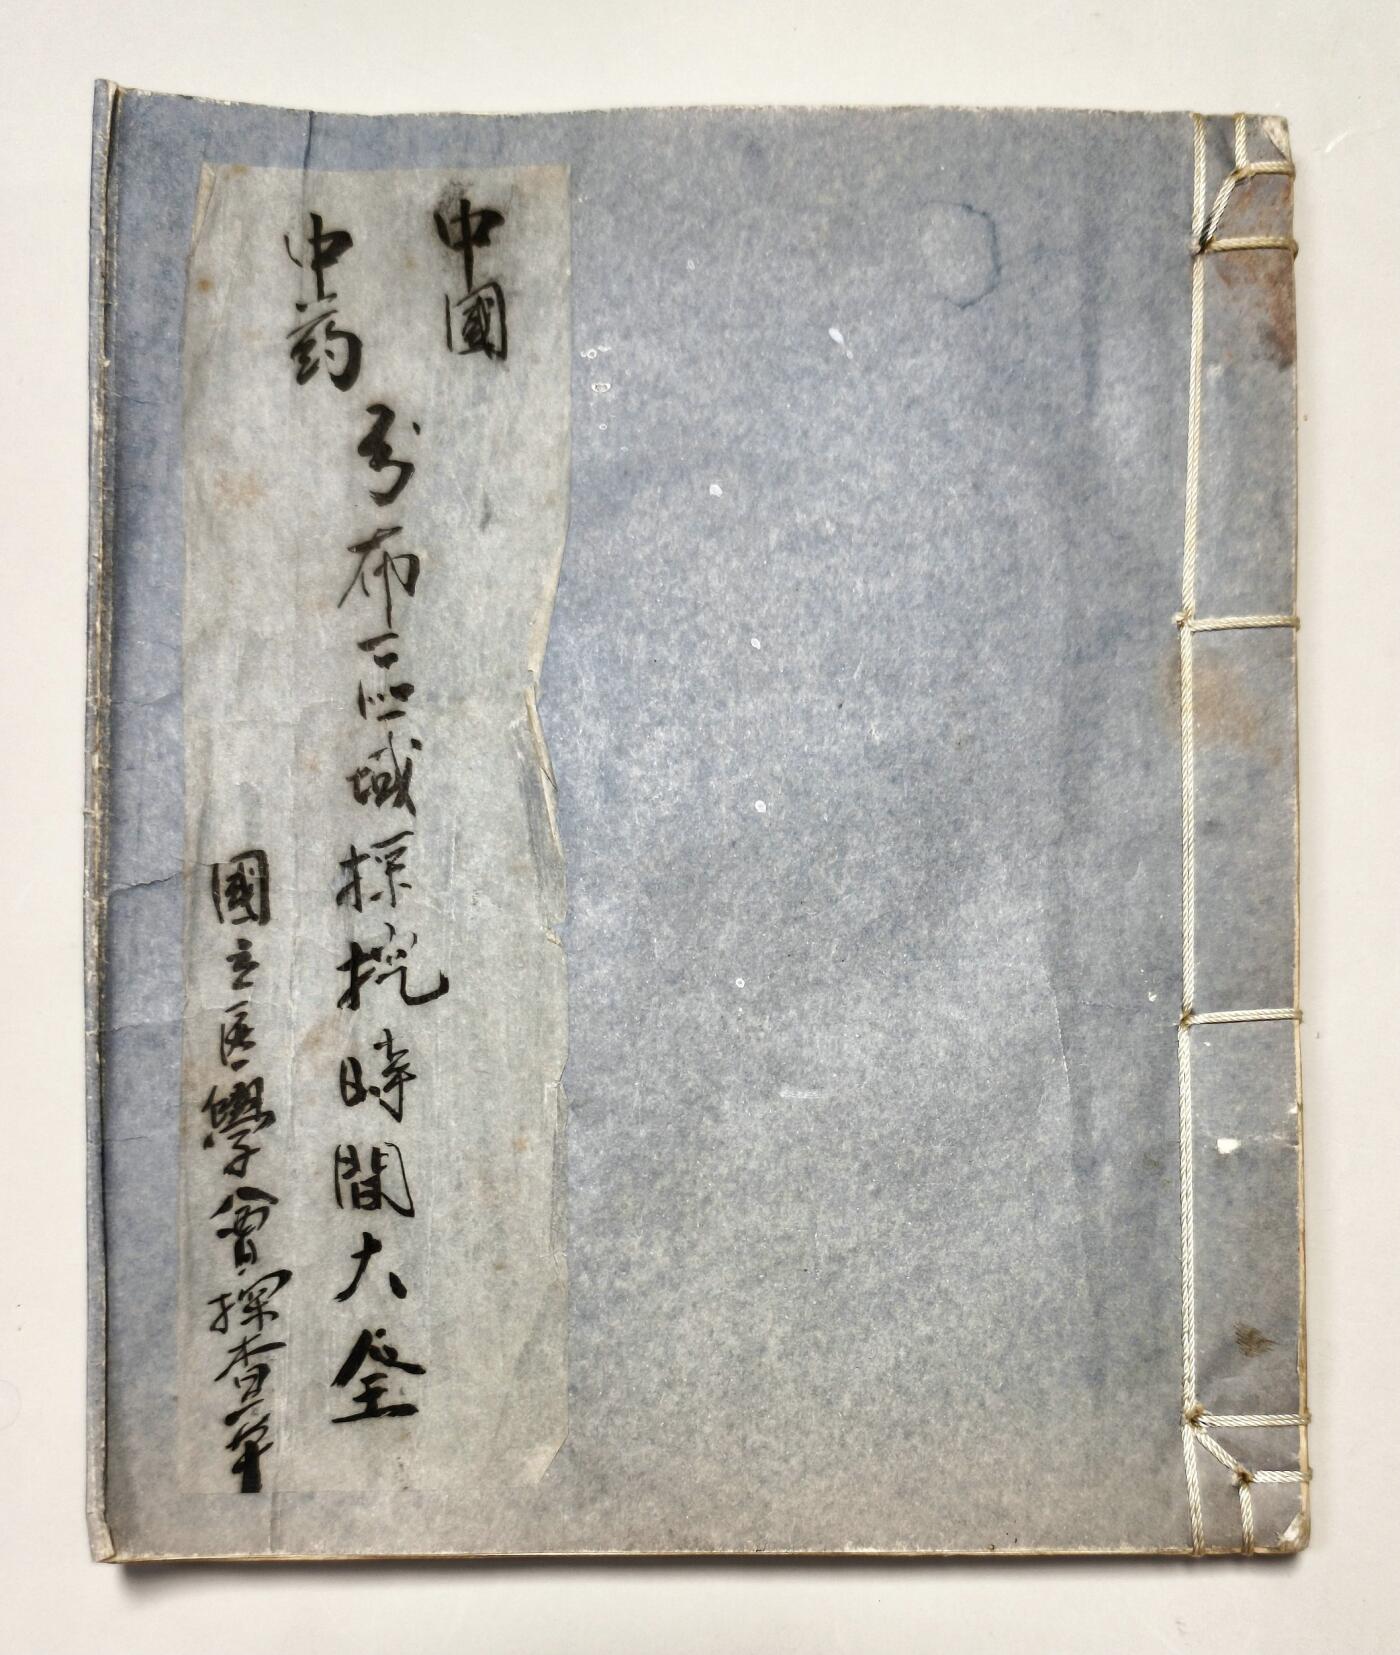 中國
中葯
分布區域採挖時間大全
國立医學會探查